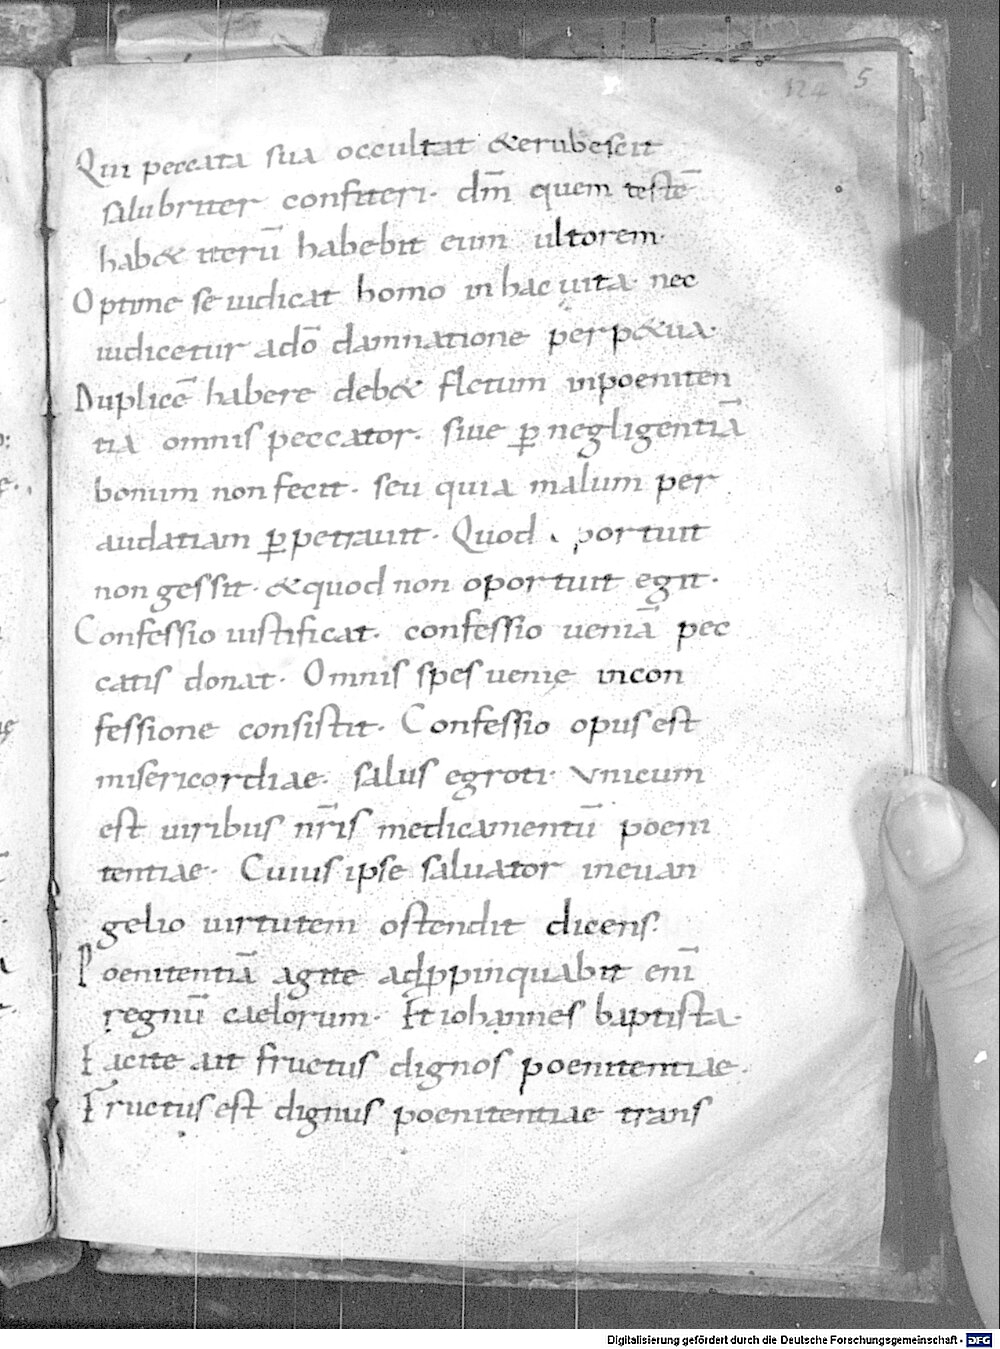 124 5
Qui peccata sua occultat &erubescit
salubriter confiteri· dm̄ quem testē
hab& iterū habebit eum ultorem·
Optime se iudicat homo inhac uita· nec
iudicetur adō damnatione perp&ua·
Duplicē habere deb& fletum inpoeniten
tia omnis peccator· siue ꝑ negligentiā
bonum non fecit· seu quia malum per
audatiam ꝑpetrauit· Quod oportuit
non gessit· &quod non oportuit egit·
Confessio iustificat· confessio ueniā pec
catis donat· Omnis spes uenię incon
fessione consistit· Confessio opus est
misericordiae· salus egroti· Vnicum
est uiribus nr̄is medicamentū poeni
tentiae· Cuius ipse saluator ineuan
gelio uirtutem ostendit dicens·
Poenitentiā agite adꝓpinquabit enī
regnū caelorum· Et iohannes baptista·
Facite ait fructus dignos poenitentiae·
Fructus est dignus poenitentiae trans
Digitalisierung gefördert durch die Deutsche Forschungsgemeinschaft - DFG